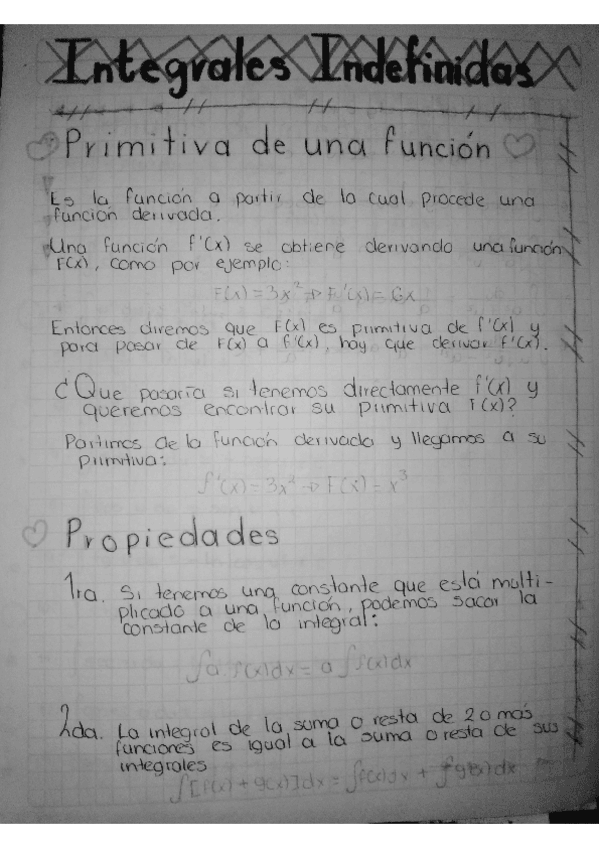 Integrales Indefinidas
Primitiva de una función
Es la función a partir de la cual procede una
función derivada.
Una función f'(x) se obtiene derivando una función
F(x), como por ejemplo:
F(x)=3x² → F'(x)= 6x
Entonces diremos que F(x) es primitiva de f'(x) y
para pasar de F(x) a f'(x), hay que derivar f'(x).
¿Que pasaría si tenemos directamente f'(x) y
queremos encontrar su primitiva F(x)?
Partimos de la función derivada y llegamos a su
primitiva:
f'(x)=3x² → F(x)= x³
Propiedades
1ra. Si tenemos una constante que está multi-
plicado a una función, podemos sacar la
constante de la integral:
∫a.f(x)dx = a ∫f(x)dx
2da. La integral de la suma o resta de 2 o más
funciones es igual a la suma o resta de sus
integrales
∫[f(x) + g(x)]dx = ∫f(x)dx + ∫g(x)dx